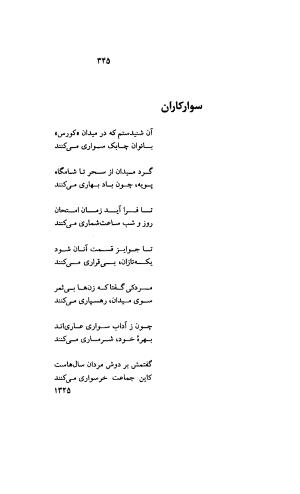 ۳۴۵
سوارکاران
آن شنیدستم که در میدان «کورس»
بانوان چابک سواری می‌کنند
گرد میدان از سحر تا شامگاه
پویه، چون باد بهاری می‌کنند
تا فرا آید زمان امتحان
روز و شب ساعت‌شماری می‌کنند
تا جوایز قسمت آنان شود
یکه‌تازان، بی‌قراری می‌کنند
مردکی گفتا که زن‌ها بی‌ثمر
سوی میدان، رهسپاری می‌کنند
چون ز آداب سواری عاری‌اند
بهرهٔ خود، شرمساری می‌کنند
گفتمش بر دوش مردان سال‌هاست
کاین جماعت خرسواری می‌کنند
۱۳۴۵